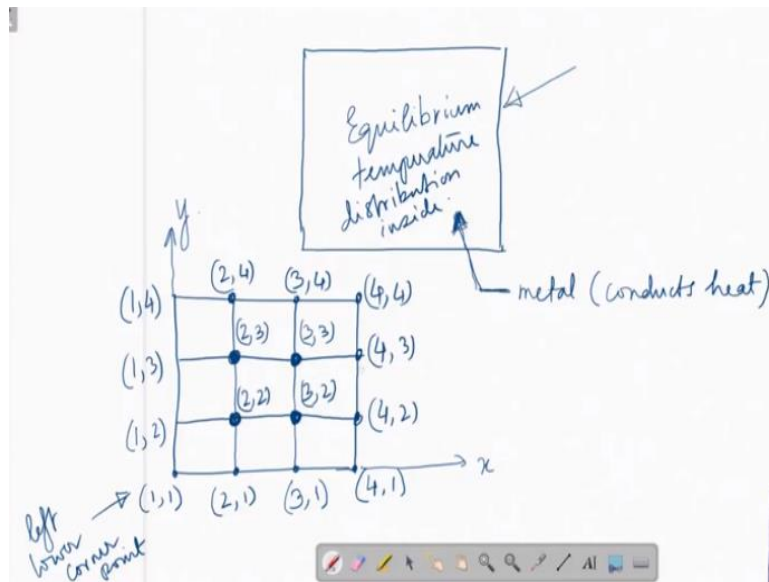 Equilibrium
temperature
distribution
inside.
metal (conducts heat)
y
(1,4) (2,4) (3,4) (4,4)
(1,3) (2,3) (3,3) (4,3)
(1,2) (2,2) (3,2) (4,2)
x
(1,1) (2,1) (3,1) (4,1)
left
lower
corner
point
AI